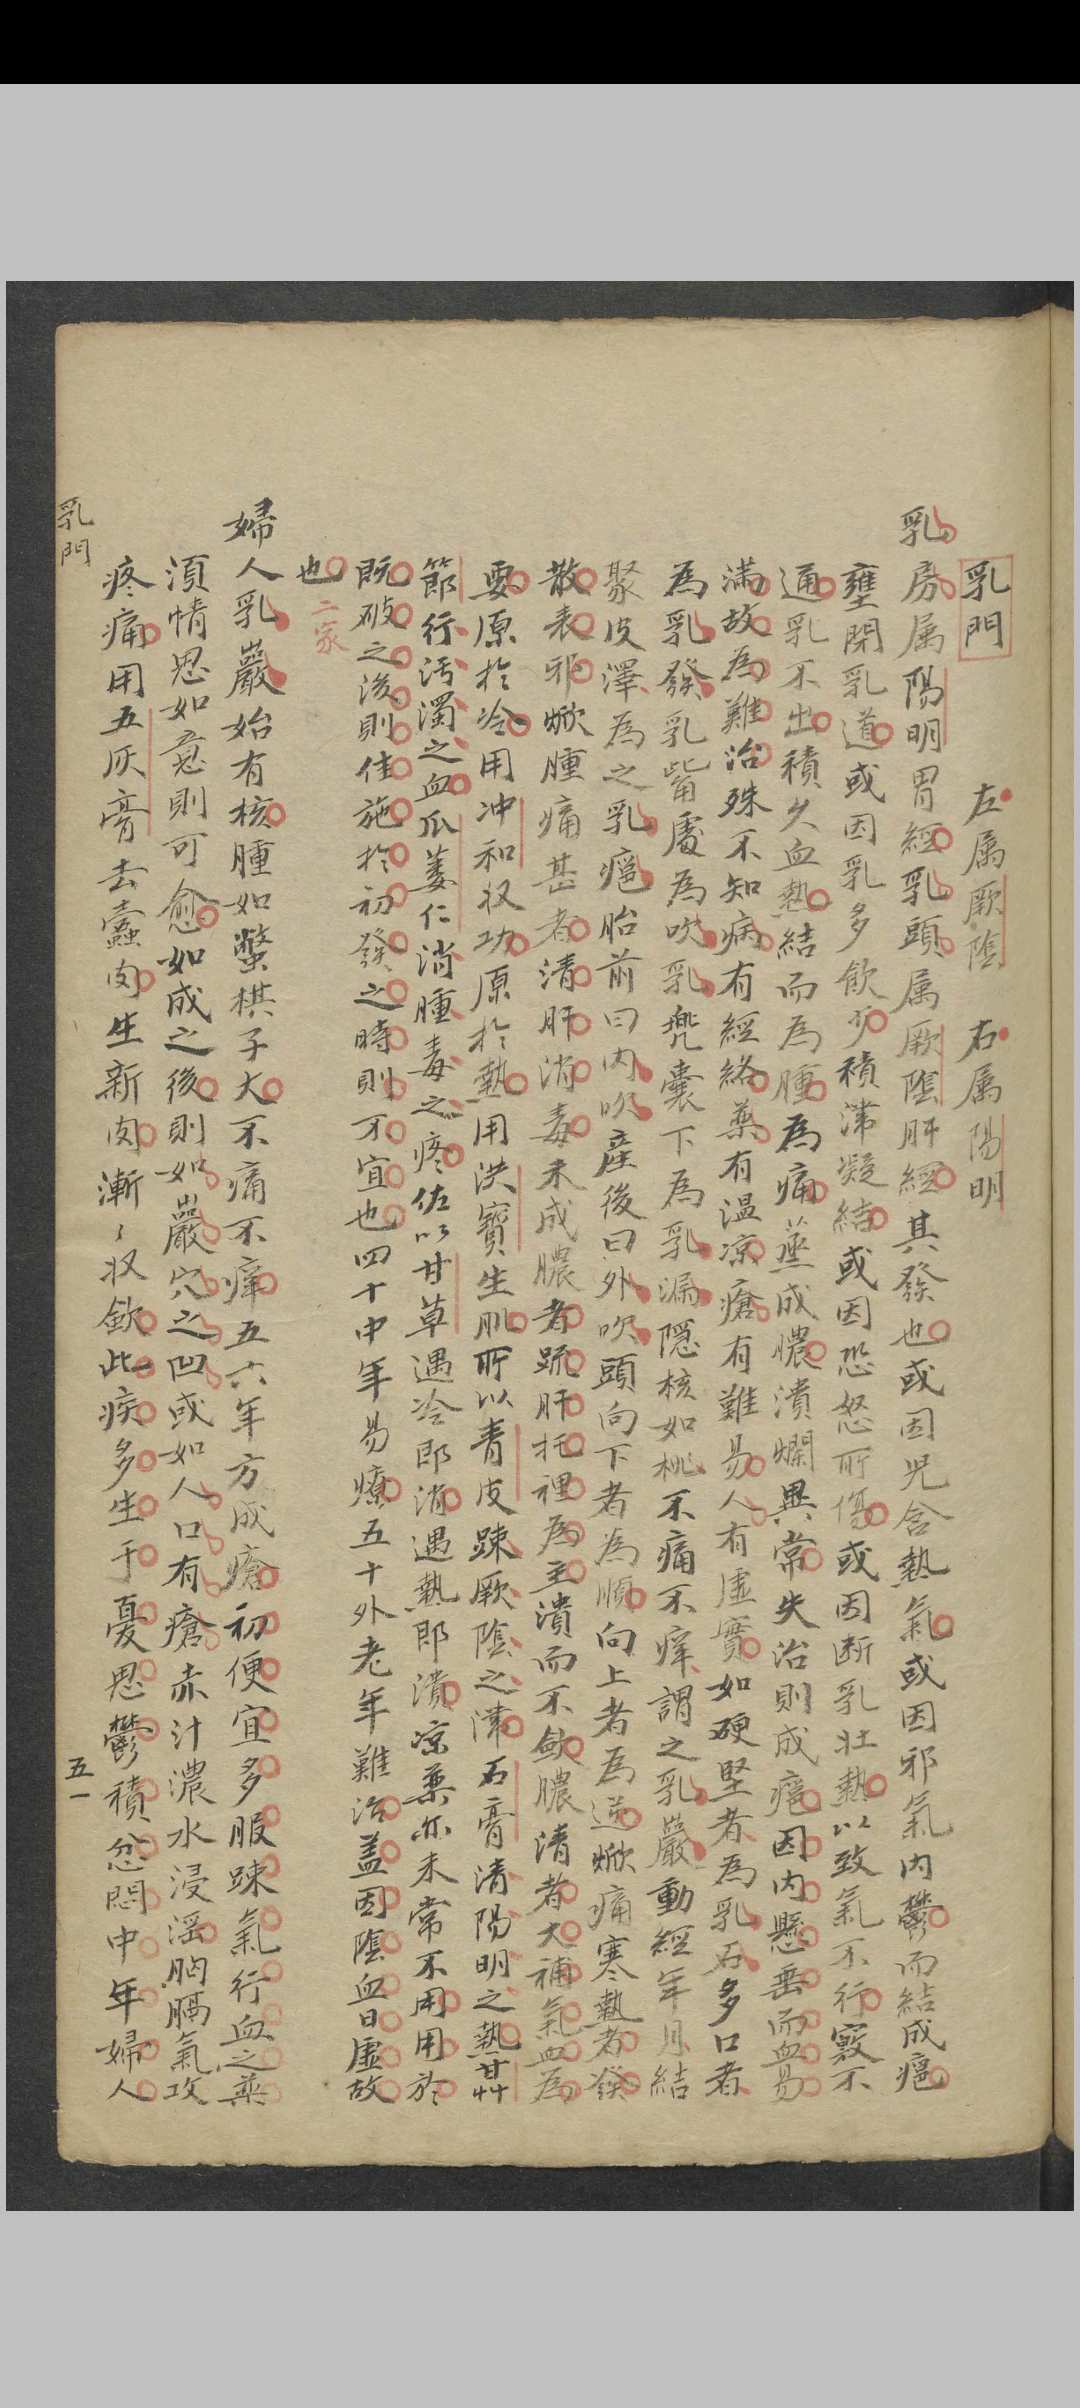 乳門
左属厥陰 右属陽明
乳房属陽明胃經乳頭属厥陰肝經其發也或因児含熱氣或因邪氣内鬱而結成癰
壅閉乳道或因乳多飲少積滞凝結或因恐怒所傷或因断乳壮熱以致氣不行竅不
通乳不出積久血熱結而為腫為痛蒸成膿潰爛異常失治則成癰因内懸垂而血易
滿故為難治殊不知病有經絡薬有温凉瘡有難易人有虚實如硬堅者為乳石多口者
為乳發乳觜處為吹乳兠囊下為乳漏隠核如桃不痛不痒謂之乳巖動經年月結
聚皮澤為之乳癰胎前曰内吹産後曰外吹頭向下者為順向上者為逆焮痛寒熱者發
散表邪焮腫痛甚者清肝消毒未成膿者疏肝托裡為主潰而不斂膿清者大補氣血為
要原於冷用冲和収功原於熱用洪寶生肌所以青皮踈厥陰之滞石膏清陽明之熱甘艸
節行汚濁之血瓜蔞仁消腫毒之疼佐以甘草遇冷即消遇熱即潰凉薬亦未常不用用於
既破之後則佳施於初發之時則不宜也四十中年易療五十外老年難治盖因陰血日虚故
也 二家
婦人乳巖始有核腫如鱉棋子大不痛不痒五六年方成瘡初便宜多服踈氣行血之薬
須情思如意則可愈如成之後則如巖穴之凹或如人口有瘡赤汁濃水浸滛胸膈氣攻
疼痛用五灰膏去蠹肉生新肉漸〻収斂此疾多生于憂思鬱積忿悶中年婦人
乳門
五一